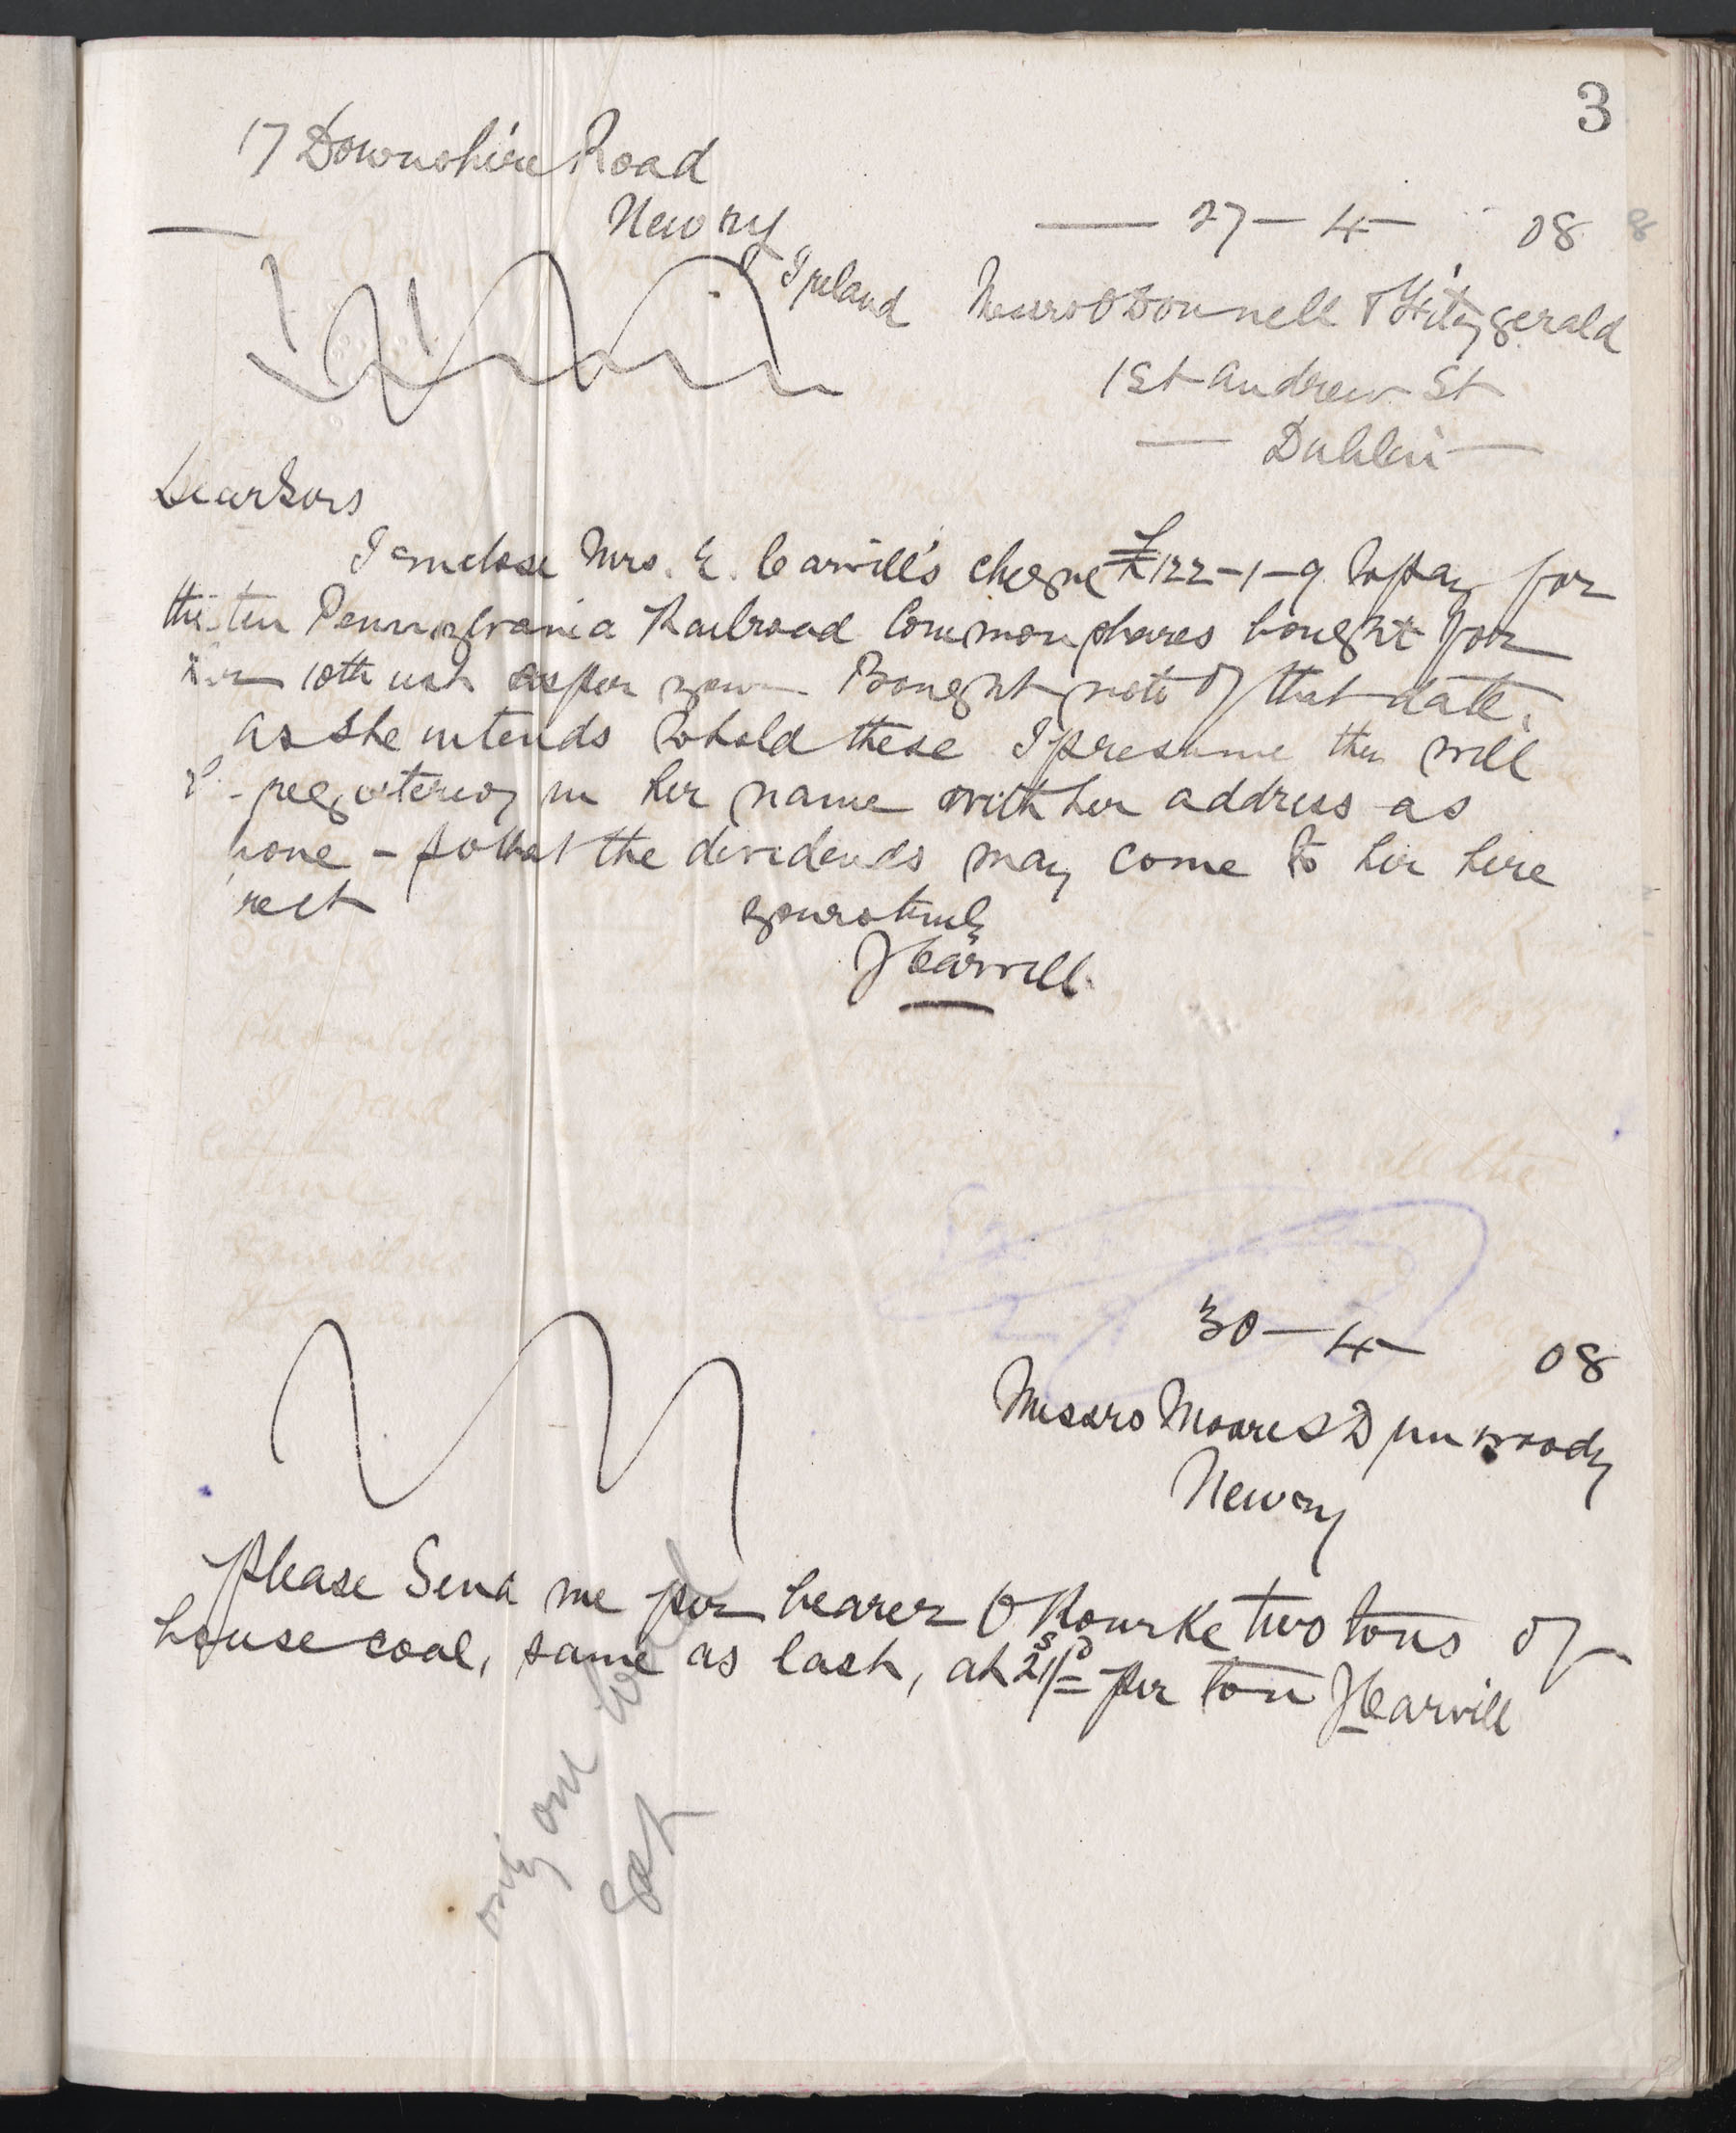 3
17 Downshire Road
Newry
Ireland
27-4- 08
Messrs O'Donnell & Fitzgerald
1 St Andrew St
Dublin
Dear Sirs
I enclose Mrs. E. Carvill's cheque £122-1-9 to pay for
the ten Pennsylvania Railroad Common shares bought for
her 10th inst as per your Bought note of that date.
As she intends to hold these I presume they will
be registered in her name with her address as
bove - so that the dividends may come to her here
rect
yours truly
J Carvill
30-4- 08
Messrs Moore & Dunwoody
Newry
Please Send me per bearer O Rourke two tons of
house coal, same as last, at 21s/=D per ton J Carvill
only one load
got